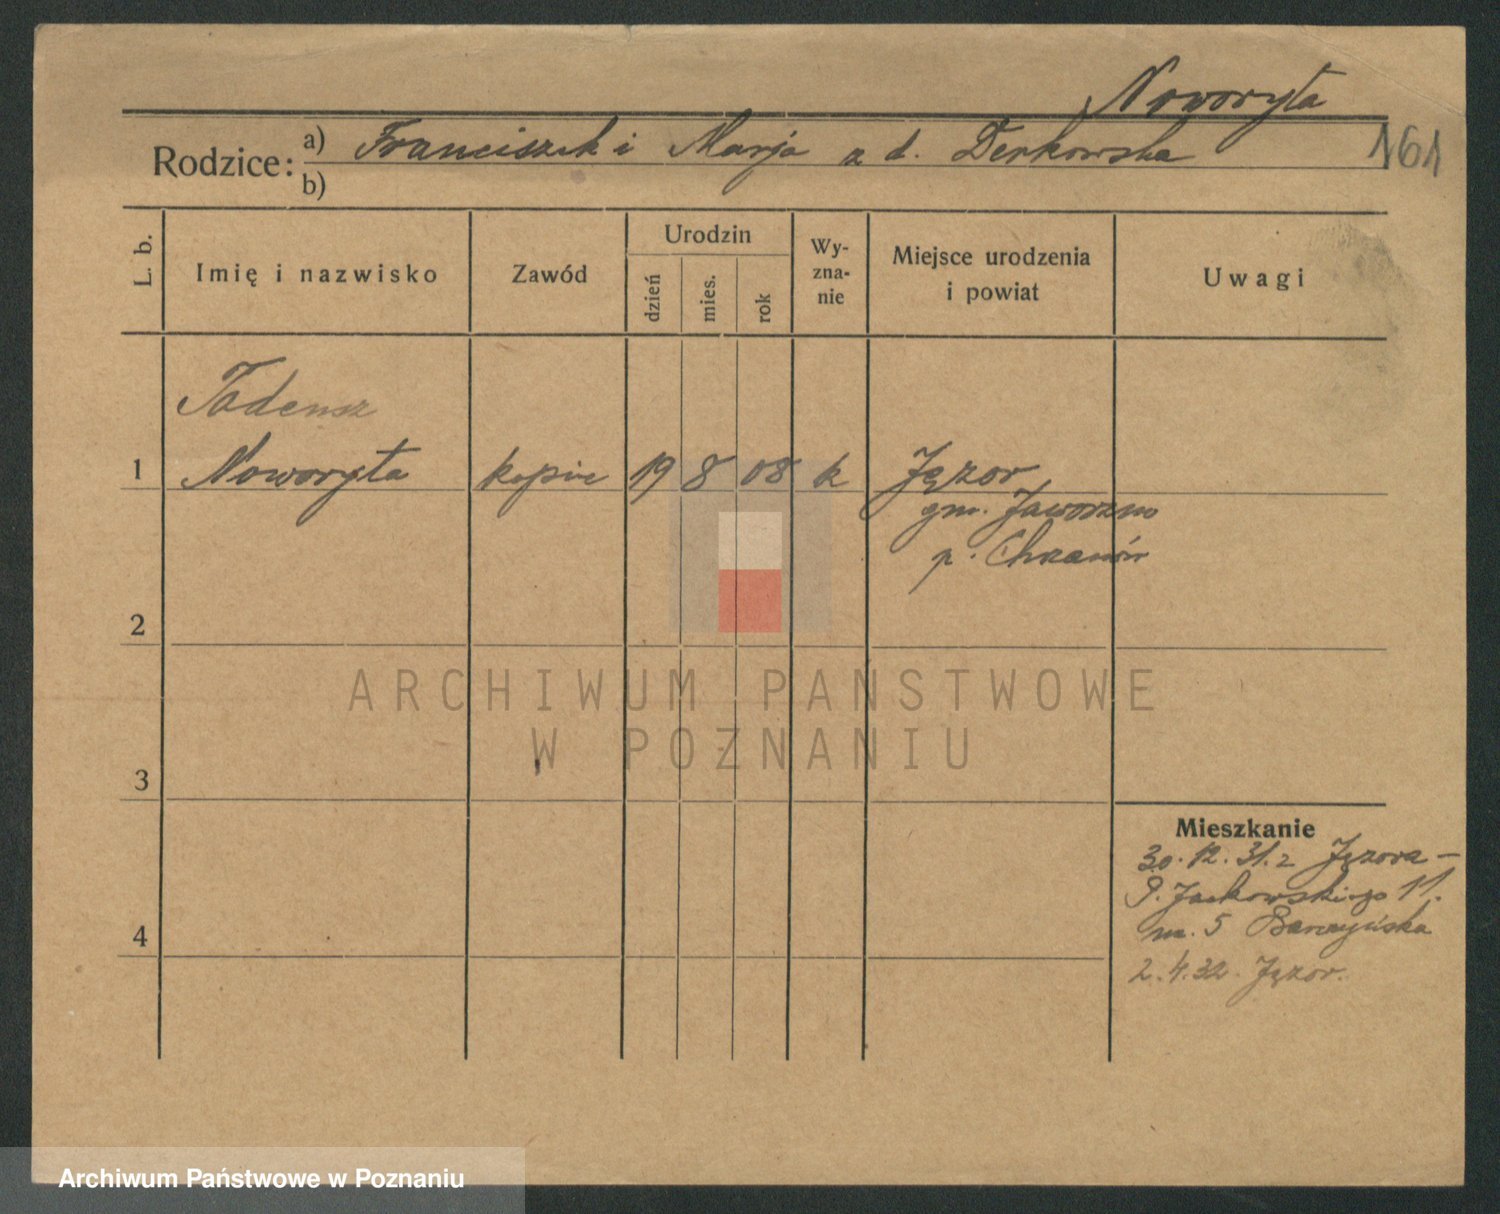 Noworyta
161
Rodzice: a) Franciszek i Marja z d. Derkowska
b)
L. b. Imię i nazwisko Zawód Urodzin dzień mies. rok Wy-zna-nie Miejsce urodzenia i powiat Uwagi
Tadeusz
1 Noworyta kupiec 19 8 08 k Jęzor
gm. Jaworzno
p. Chrzanów
2
3
4
Mieszkanie
30.12.31. z Jęzora –
P. Jackowskiego 11.
m. 5 Barczyńska
2.4.32. Jęzor.
ARCHIWUM PAŃSTWOWE
W POZNANIU
Archiwum Państwowe w Poznaniu